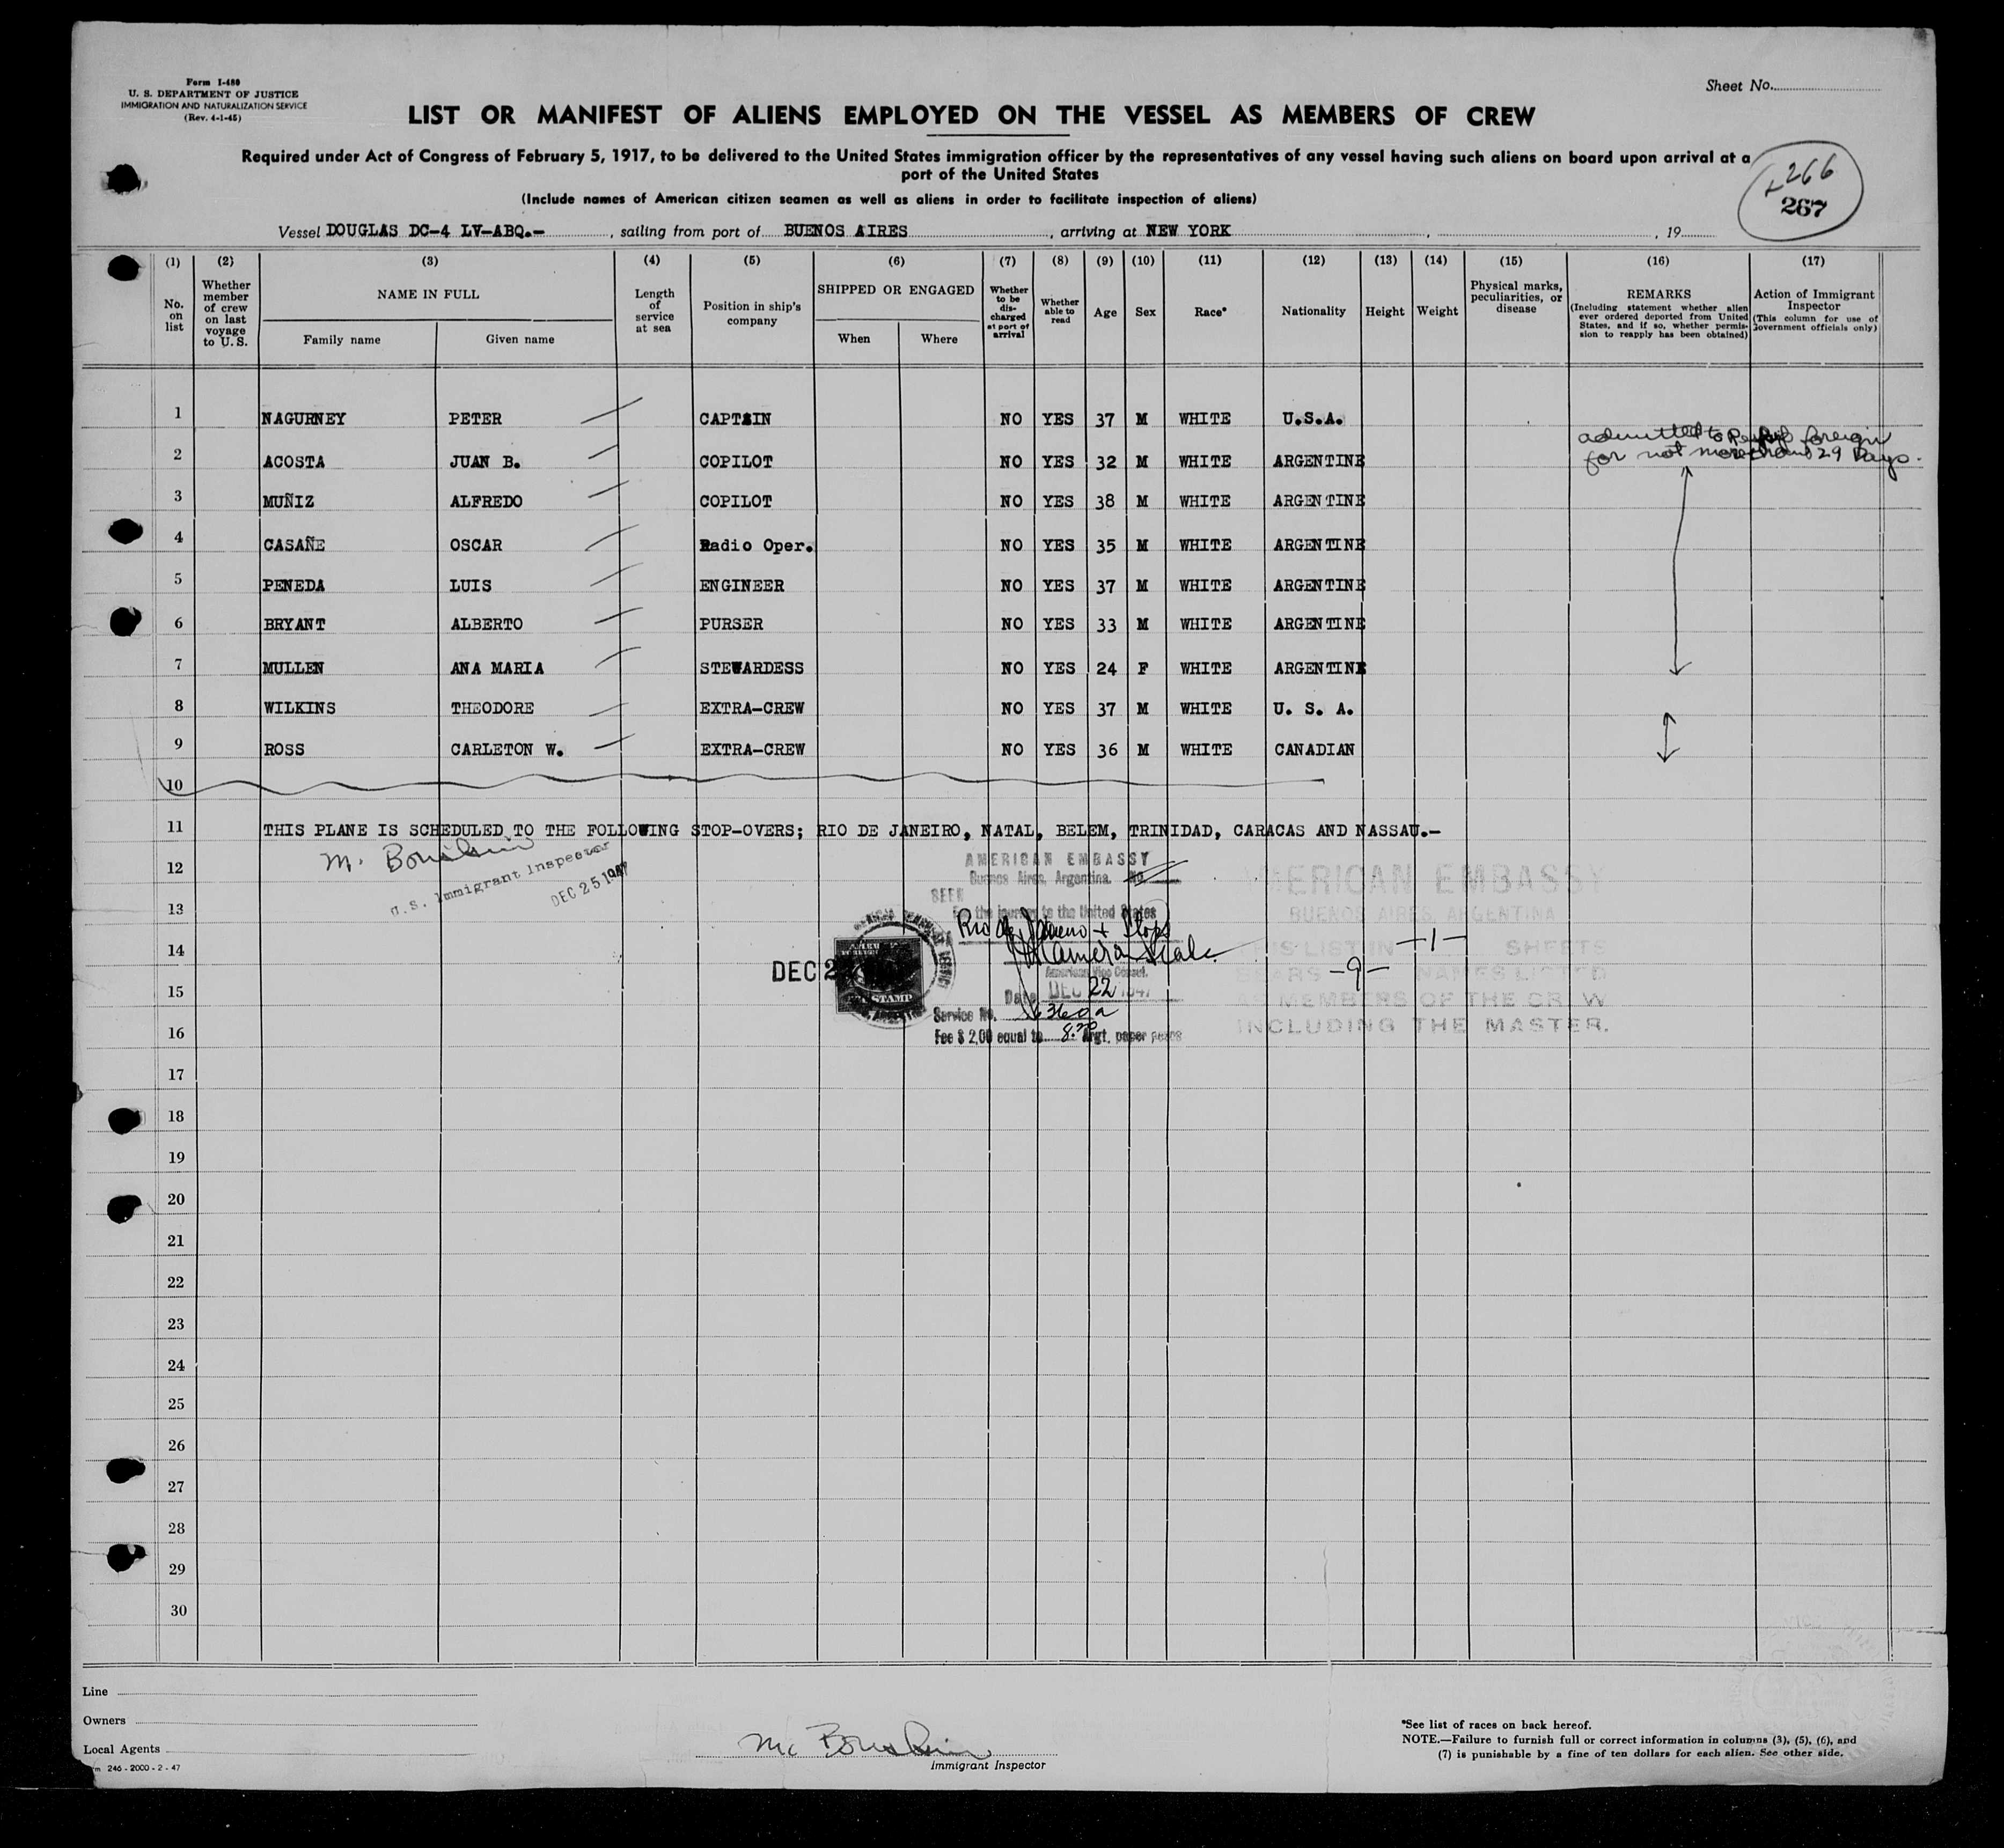 Form I-480
U. S. DEPARTMENT OF JUSTICE
IMMIGRATION AND NATURALIZATION SERVICE
(Rev. 4-1-45)
Sheet No.
LIST OR MANIFEST OF ALIENS EMPLOYED ON THE VESSEL AS MEMBERS OF CREW
Required under Act of Congress of February 5, 1917, to be delivered to the United States immigration officer by the representatives of any vessel having such aliens on board upon arrival at a
port of the United States
(Include names of American citizen seamen as well as aliens in order to facilitate inspection of aliens)
266
267
Vessel DOUGLAS DC-4 LV-ABQ.- , sailing from port of BUENOS AIRES , arriving at NEW YORK , , 19
(1) (2) (3) (4) (5) (6) (7) (8) (9) (10) (11) (12) (13) (14) (15) (16) (17)
No. on list
Whether member of crew on last voyage to U. S.
NAME IN FULL
Family name Given name
Length of service at sea
Position in ship's company
SHIPPED OR ENGAGED
When Where
Whether to be discharged at port of arrival
Whether able to read
Age
Sex
Race*
Nationality
Height
Weight
Physical marks, peculiarities, or disease
REMARKS
(Including statement whether alien ever ordered deported from United States, and if so, whether permission to reapply has been obtained)
Action of Immigrant Inspector
(This column for use of Government officials only)
1 NAGURNEY PETER CAPTAIN NO YES 37 M WHITE U.S.A.
admitted to foreign
for not more than 29 Days.
2 ACOSTA JUAN B. COPILOT NO YES 32 M WHITE ARGENTINE
3 MUÑIZ ALFREDO COPILOT NO YES 38 M WHITE ARGENTINE
4 CASAÑE OSCAR Radio Oper. NO YES 35 M WHITE ARGENTINE
5 PENEDA LUIS ENGINEER NO YES 37 M WHITE ARGENTINE
6 BRYANT ALBERTO PURSER NO YES 33 M WHITE ARGENTINE
7 MULLEN ANA MARIA STEWARDESS NO YES 24 F WHITE ARGENTINE
8 WILKINS THEODORE EXTRA-CREW NO YES 37 M WHITE U. S. A.
9 ROSS CARLETON W. EXTRA-CREW NO YES 36 M WHITE CANADIAN
10
11 THIS PLANE IS SCHEDULED TO THE FOLLOWING STOP-OVERS; RIO DE JANEIRO, NATAL, BELEM, TRINIDAD, CARACAS AND NASSAU.-
12
U.S. Immigrant Inspector
DEC 25 1947
AMERICAN EMBASSY
Buenos Aires, Argentina. No
SEEN
For the journey to the United States
Rio de Janeiro + Stops
American Vice Consul.
Date DEC 22 1947
Service No.
Fee $ 2,00 equal to Argt. paper pesos
STAMP
AMERICAN EMBASSY
BUENOS AIRES, ARGENTINA
THIS LIST IN -1- SHEETS
BEARS -9- NAMES LISTED
AS MEMBERS OF THE CREW
INCLUDING THE MASTER.
13
14
15
16
17
18
19
20
21
22
23
24
25
26
27
28
29
30
Line
Owners
Local Agents
246 - 2000 - 2 - 47
Immigrant Inspector
*See list of races on back hereof.
NOTE.—Failure to furnish full or correct information in columns (3), (5), (6), and
(7) is punishable by a fine of ten dollars for each alien. See other side.